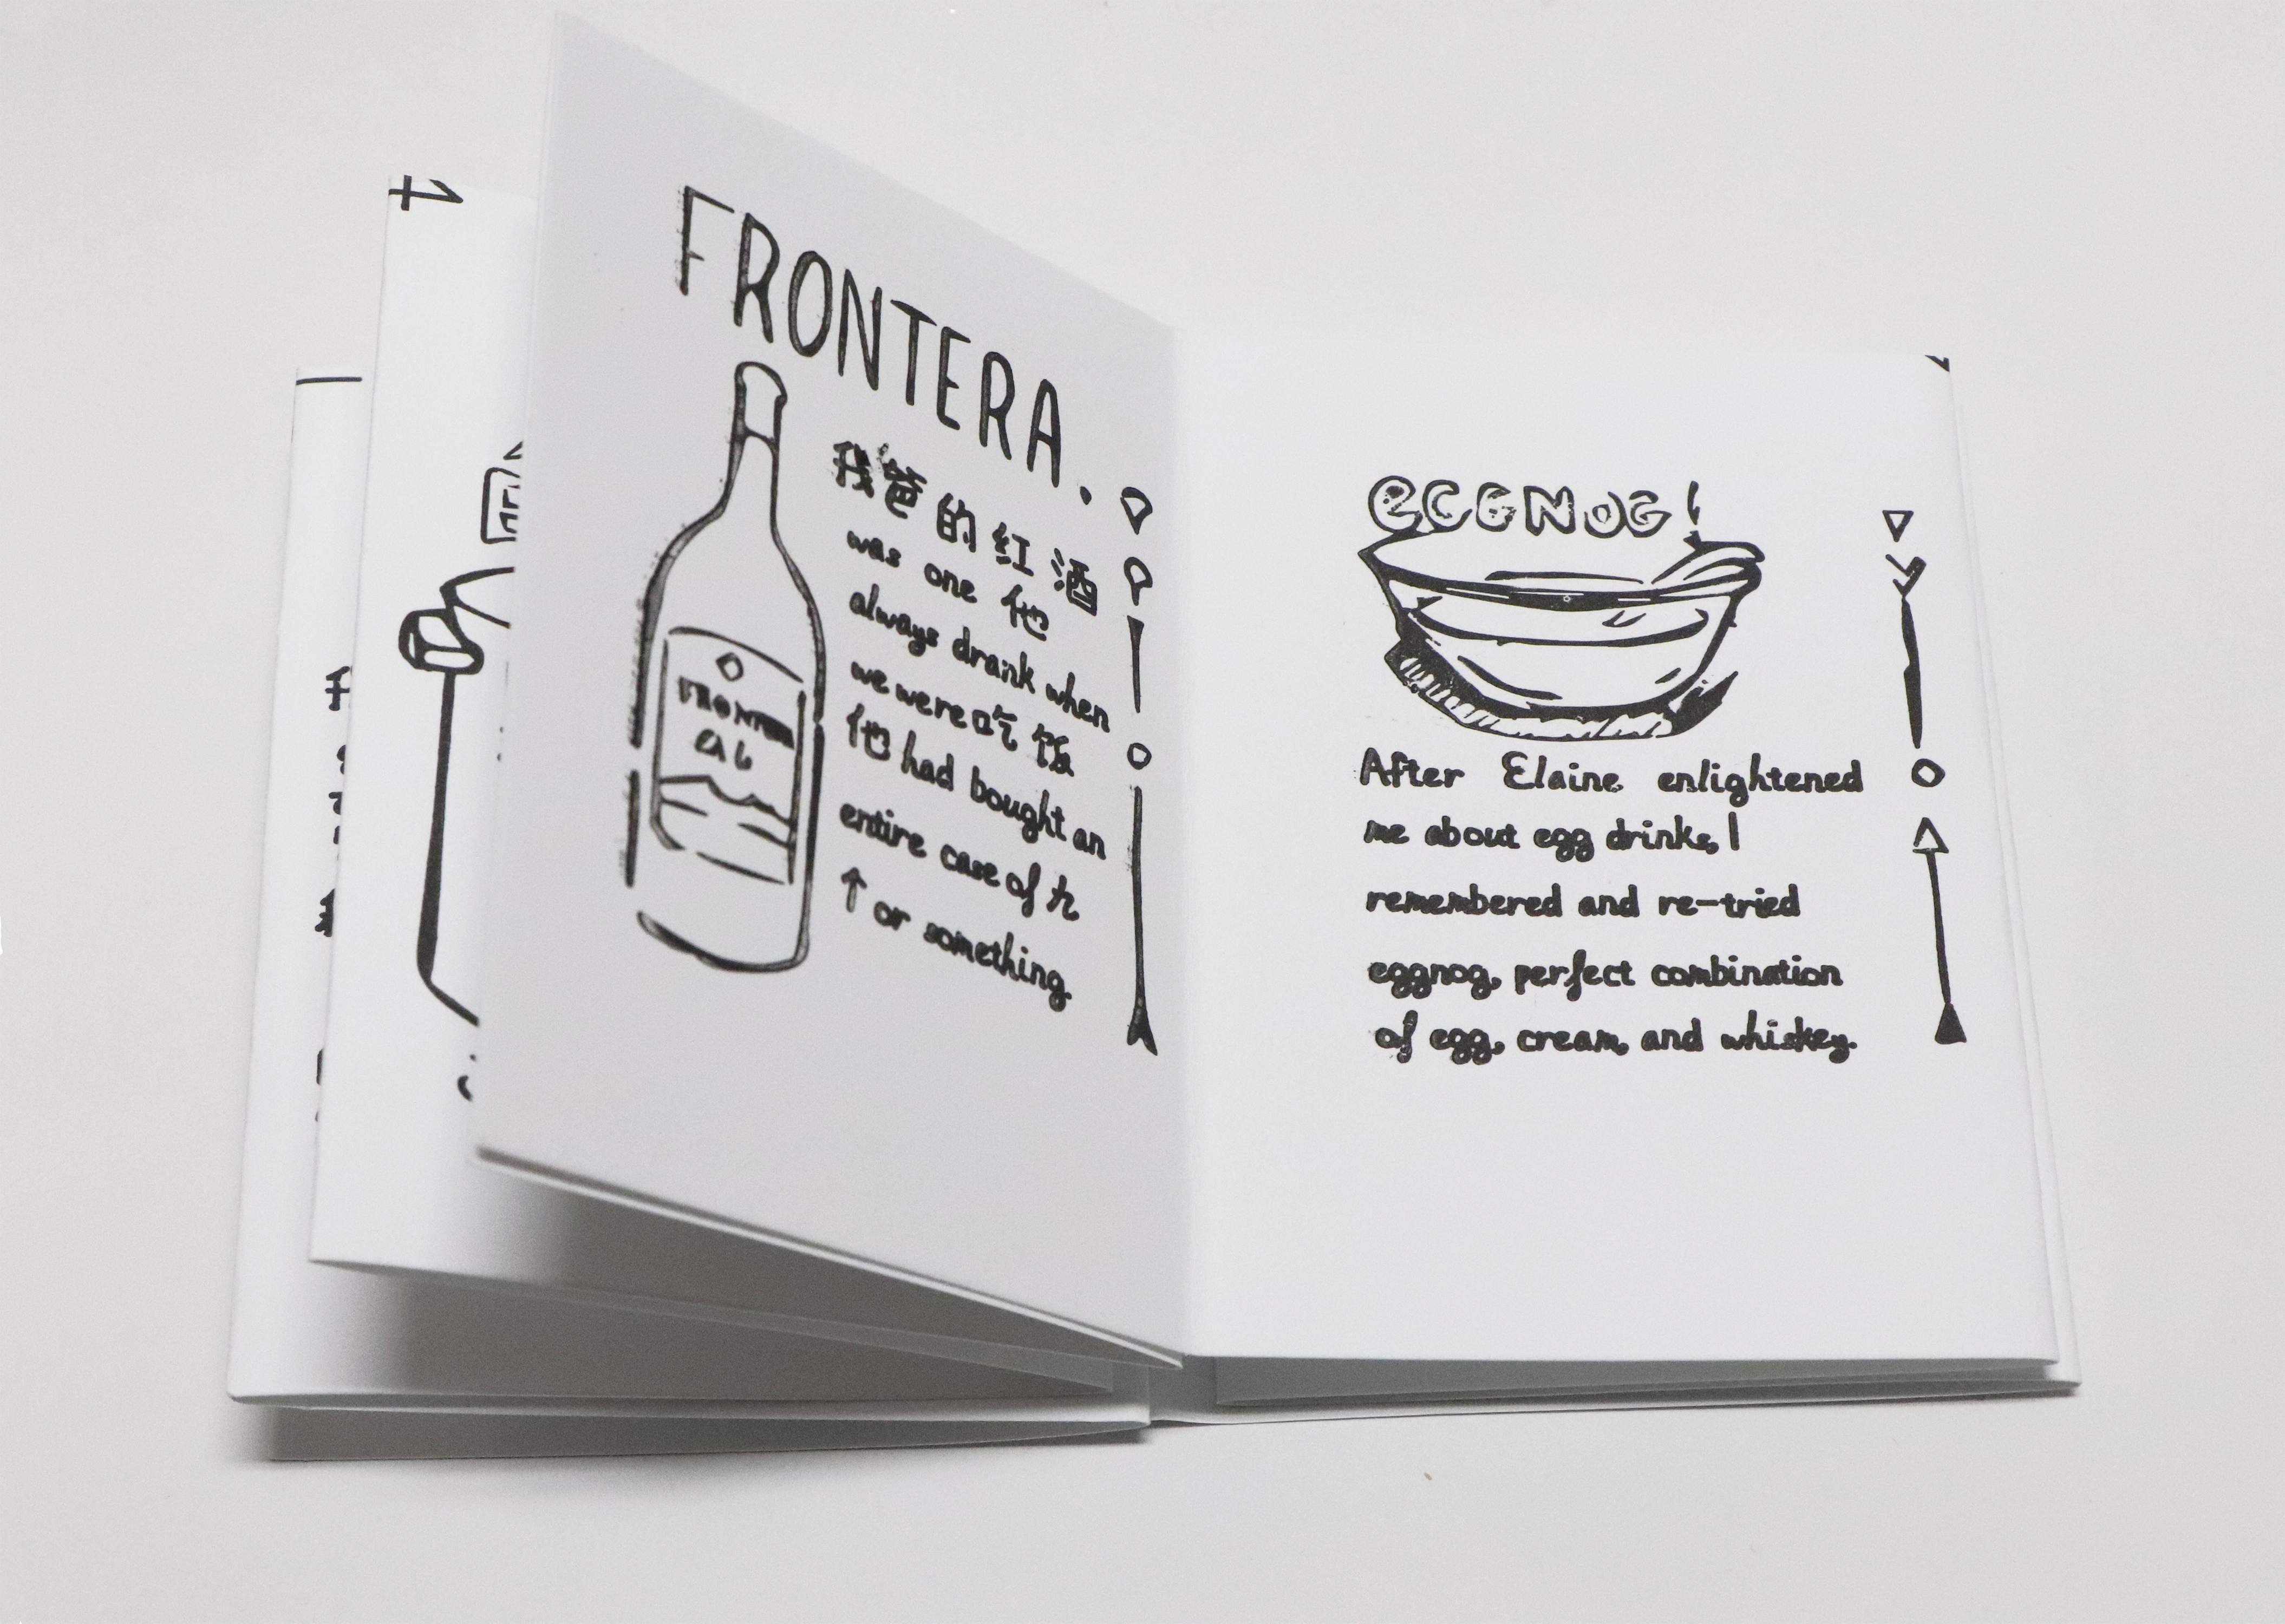 FRONTERA.
我爸的红酒
was one 他
always drank when
we were吃饭
他 had bought an
entire case of 九
个 or something
FRONTER
EGGNOG!
After Elaine enlightened
me about egg drinks, I
remembered and re-tried
eggnog, perfect combination
of egg, cream, and whiskey.